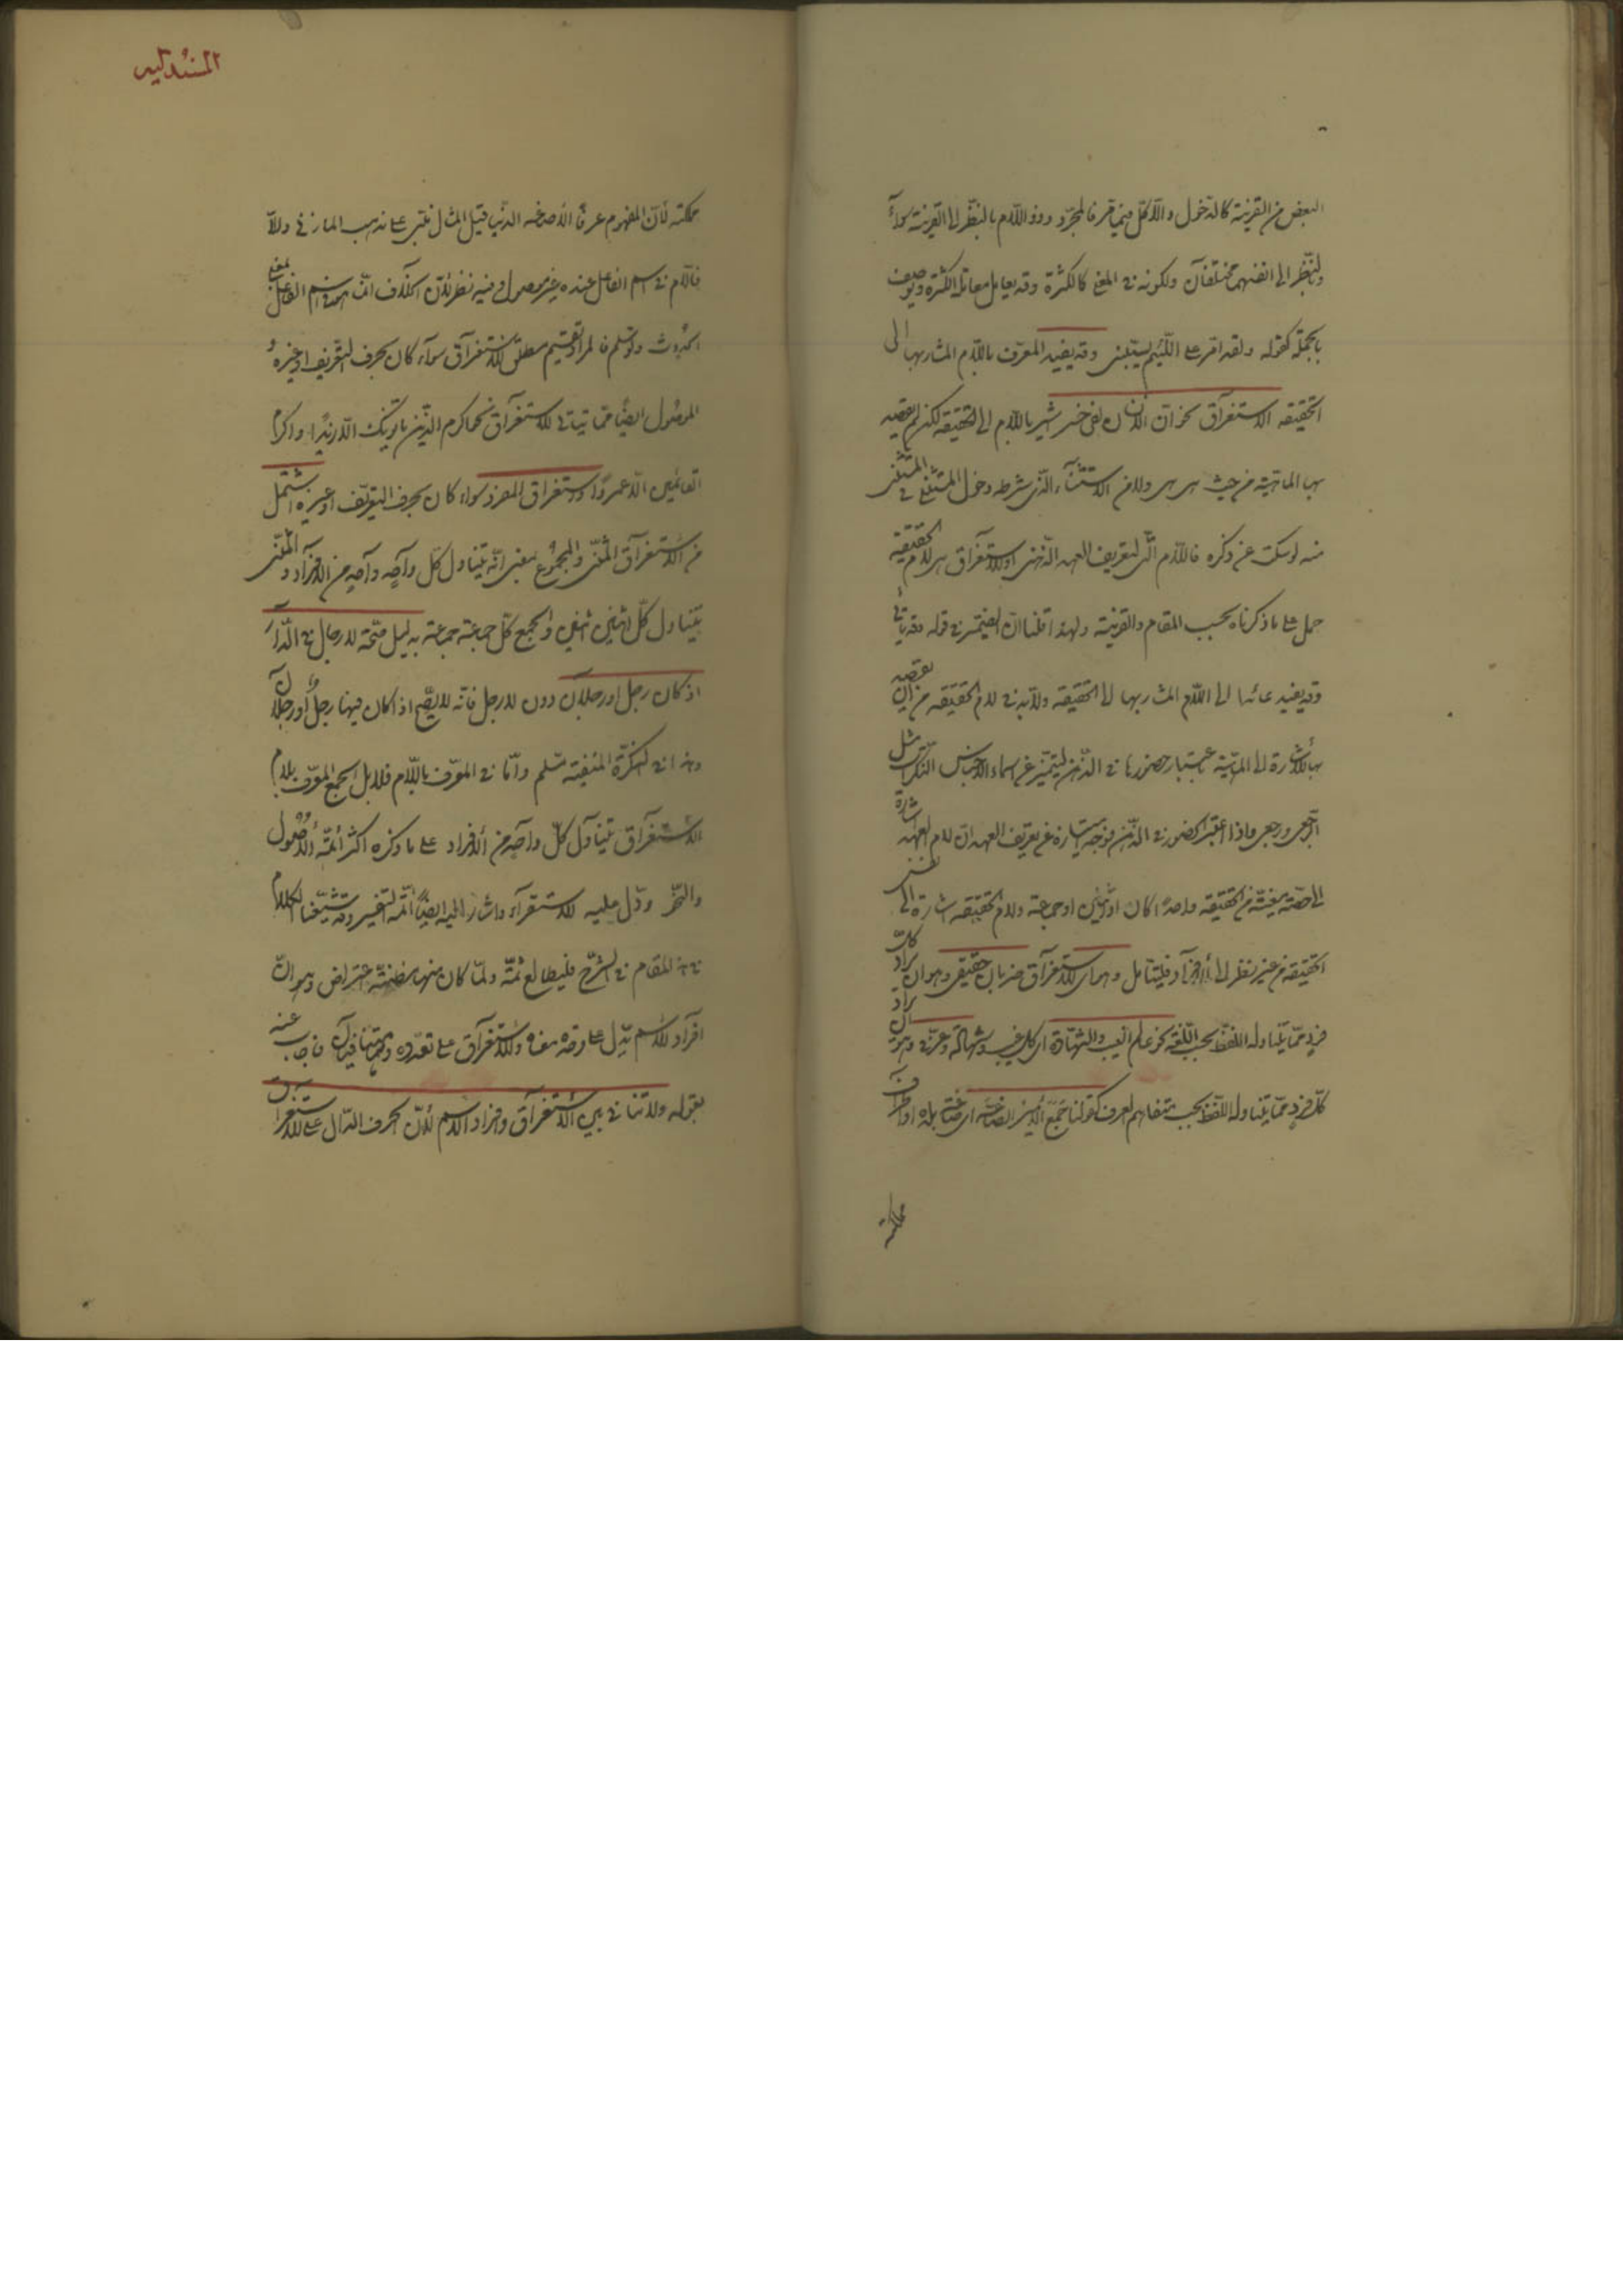 البعض من القرينة كالدخول والاكل فيما مر فالمجرد وذو اللام بالنظر الى القرينة سواء
وبالنظر الى انفسهما مختلفان ولكونه في المعنى كالنكرة وقد يعامل معاملة النكرة ويوصف
بالجملة كقوله ولقد امر على اللئيم يسبني وقد يفيد المعرف باللام المشار بها الى
الحقيقة الاستغراق نحو ان الانسان لفي خسر اشير باللام الى الحقيقة لكن لم يقصد
بها الماهية من حيث هي هي ولا من الاستثناء الذي شرطه دخول المستثنى في المستثنى
منه لو سكت عن ذكره فاللام التي لتعريف العهد الذهني او للاستغراق هي لام الحقيقة
حمل على ما ذكرناه بحسب المقام والقرينة ولهذا قلنا ان الضمير في قوله وقد ياتي
وقد يفيد عائد الى اللام المشار بها الى الحقيقة ولا بد في لام الحقيقة من ان يقصد
بها الاشارة الى الماهية باعتبار حضورها في الذهن ليتميز عن اسماء الاجناس النكرات مثل
الرجعى ورجعى واذا اعتبر الحضور في الذهن فوجه امتيازه عن تعريف العهد ان لام العهد اشارة
الى حصة معينة من الحقيقة واحدا كان او اثنين او جماعة ولام الحقيقة اشارة الى نفس
الحقيقة من غير نظر الى الافراد فليتامل وهو اي الاستغراق ضربان حقيقي وهو ان يراد كل
فرد مما يتناوله اللفظ بحسب اللغة نحو عالم الغيب والشهادة اي كل غيب وشهادة وعرفي وهو ان يراد
كل فرد مما يتناوله اللفظ بحسب متفاهم العرف كقولنا جمع الامير الصاغة اي صاغة بلده او اطراف
مملكته
المسند اليه
مملكته لان المفهوم عرفا لا صاغة الدنيا قيل المثال مبني على مذهب المازني والا
فاللام في اسم الفاعل عنده غير موصول وفيه نظر لان الخلاف انما هو في اسم الفاعل بمعنى
الحدوث ولو سلم فالمراد تقسيم مطلق الاستغراق سواء كان بحرف التعريف او غيره و
الموصول ايضا مما ياتي للاستغراق نحو اكرم الذين ياتونك الا زيدا واكرم
القائمين الا عمروا واستغراق المفرد سواء كان بحرف التعريف او غيره اشمل
من استغراق المثنى والمجموع بمعنى انه يتناول كل واحد واحد من الافراد والمثنى
يتناول كل اثنين اثنين والجمع كل جماعة جماعة بدليل صحة لا رجال في الدار
اذا كان رجل او رجلان دون لا رجل فانه لا يصح اذا كان فيها رجل او رجلان
وهذا في النكرة المنفية مسلم واما في المعرف باللام فلا بل الجمع المعرف بلام
الاستغراق يتناول كل واحد من الافراد على ما ذكره اكثر ائمة الاصول
والنحو ودل عليه الاستقراء واشار اليه ايضا ائمة التفسير وقد اشبعنا الكلام
في هذا المقام في الشرح فليطالع ثمة ولما كان ههنا مظنة اعتراض وهو ان
افراد الاسم يدل على وحدة معناه والاستغراق على تعدده وهما متنافيان اجاب عنه
بقوله ولا تنافي بين الاستغراق وافراد الاسم لان الحرف الدال على الاستغراق